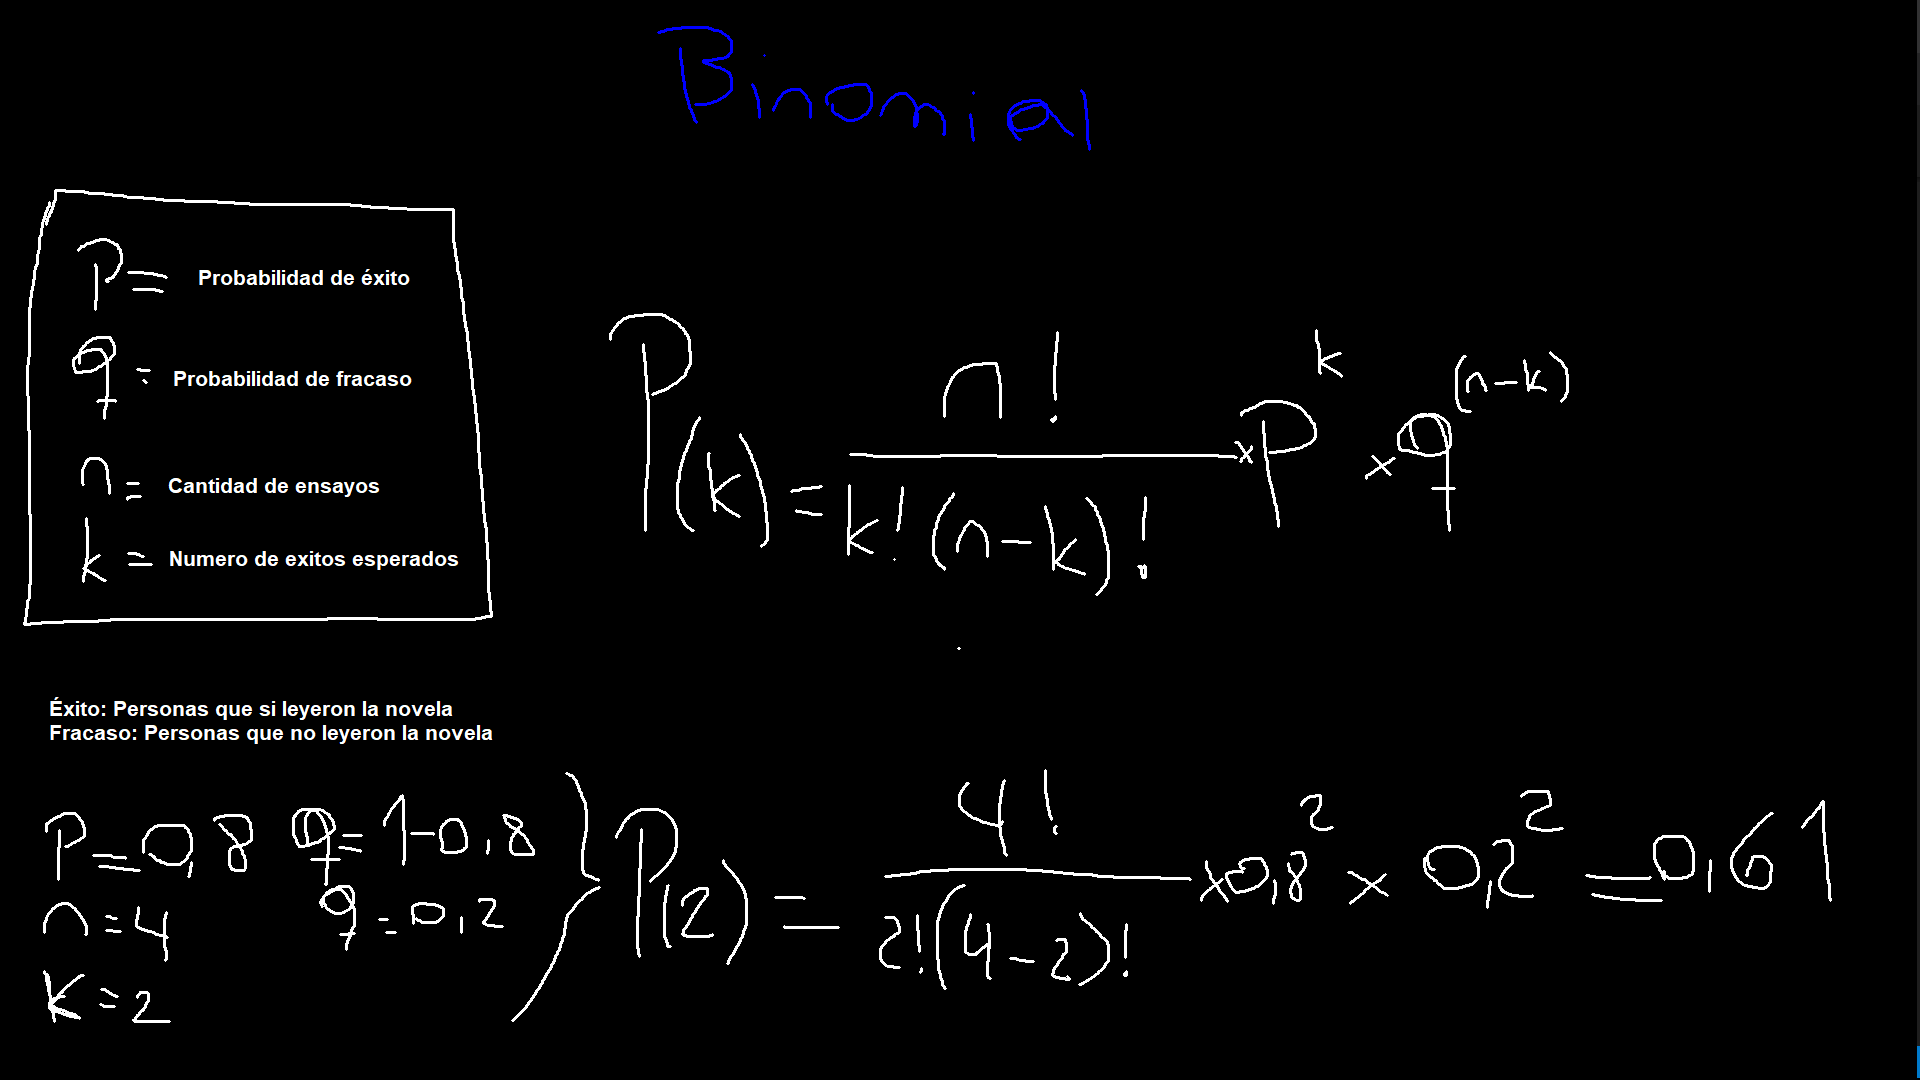 Binomial
P= Probabilidad de éxito
q= Probabilidad de fracaso
n= Cantidad de ensayos
k= Numero de exitos esperados
P(k) = n! / k!(n-k)! x P^k x q^(n-k)
Éxito: Personas que si leyeron la novela
Fracaso: Personas que no leyeron la novela
P=0,8 q=1-0,8
n=4 q=0,2
K=2
P(2) = 4! / 2!(4-2)! x 0,8^2 x 0,2^2 = 0,61